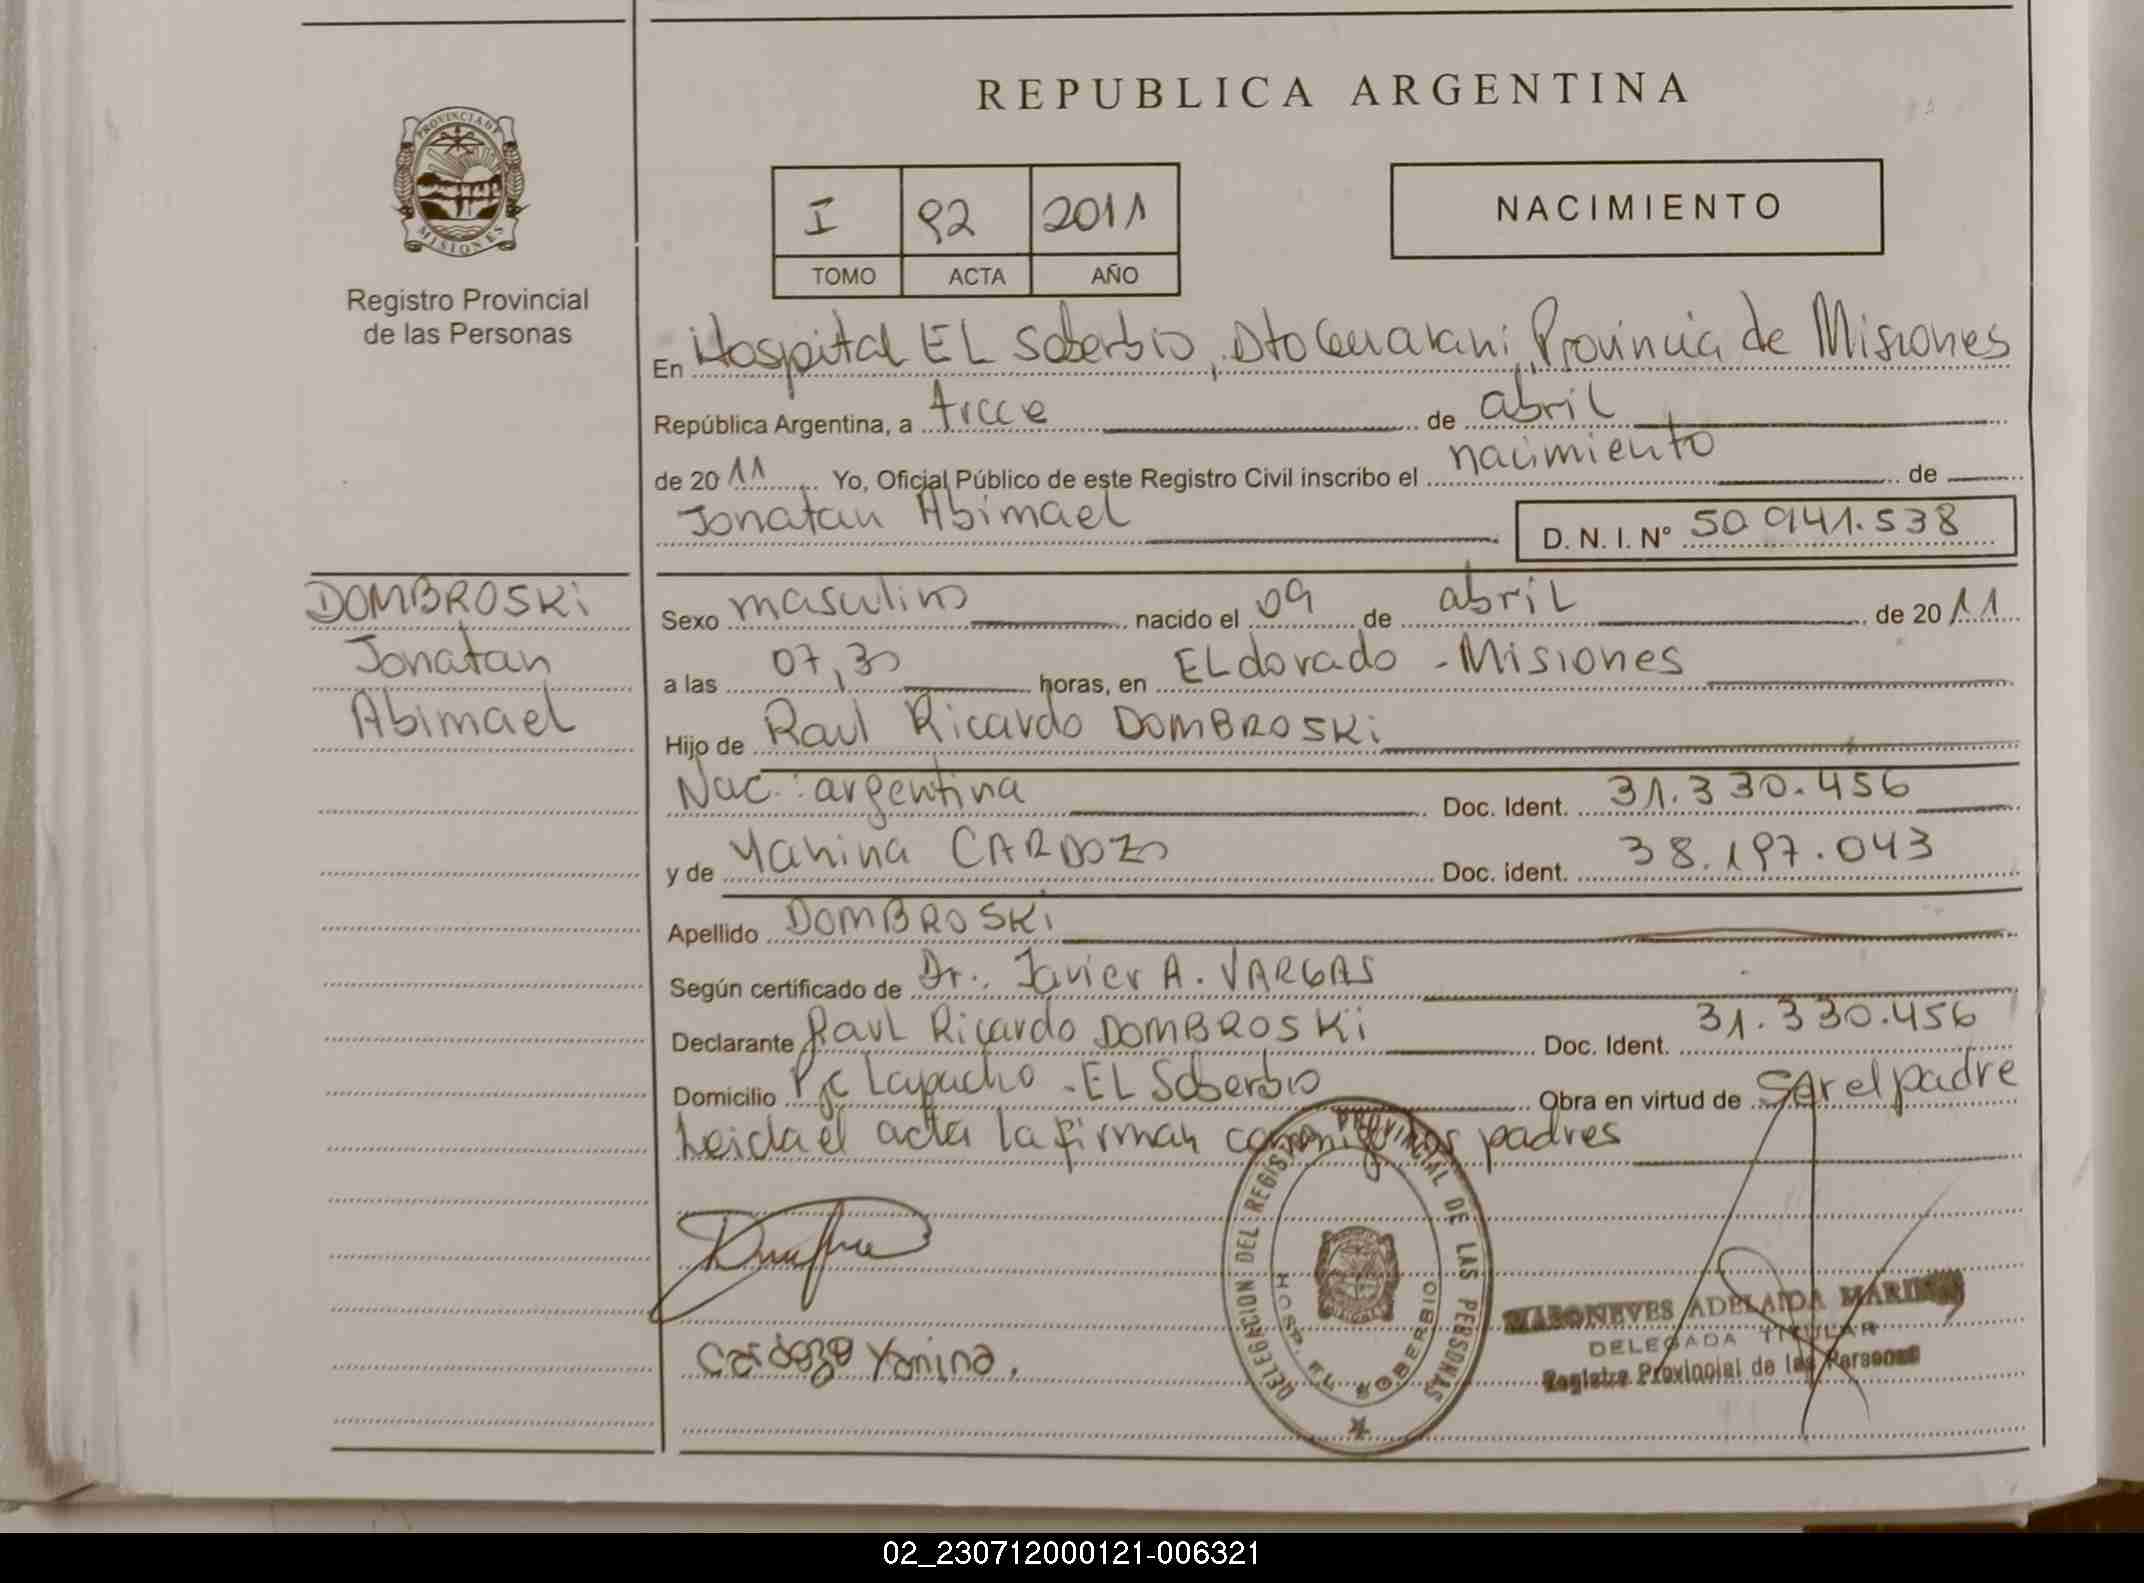 REPUBLICA ARGENTINA
PROVINCIA DE
MISIONES
Registro Provincial
de las Personas
I 92 2011
TOMO ACTA AÑO
NACIMIENTO
En Hospital EL Soberbio, Dto Guarani, Provincia de Misiones
República Argentina, a trece de abril
de 2011 Yo, Oficial Público de este Registro Civil inscribo el nacimiento de
Jonatan Abimael D. N. I. Nº 50 941.538
DOMBROSKi
Jonatan
Abimael
Sexo masculino nacido el 09 de abril de 2011
a las 07,30 horas, en ELdorado - Misiones
Hijo de Raul Ricardo DOMBROSKi
Nac.: argentina Doc. Ident. 31.330.456
y de Yanina CARDOZO Doc. ident. 38.197.043
Apellido DOMBROSKi
Según certificado de Dr. Javier A. VARGAS
Declarante Raul Ricardo DOMBROSKi Doc. Ident. 31.330.456
Domicilio Pje Lapacho - EL Soberbio Obra en virtud de ser el padre
Leida el acta la firman conmigo los padres
DELEGACION DEL REGISTRO PROVINCIAL DE LAS PERSONAS
HOSP. EL SOBERBIO
Cardozo Yanina.
ADELAIDA
DELEGADA TITULAR
Registro Provincial de las Personas
02_230712000121-006321